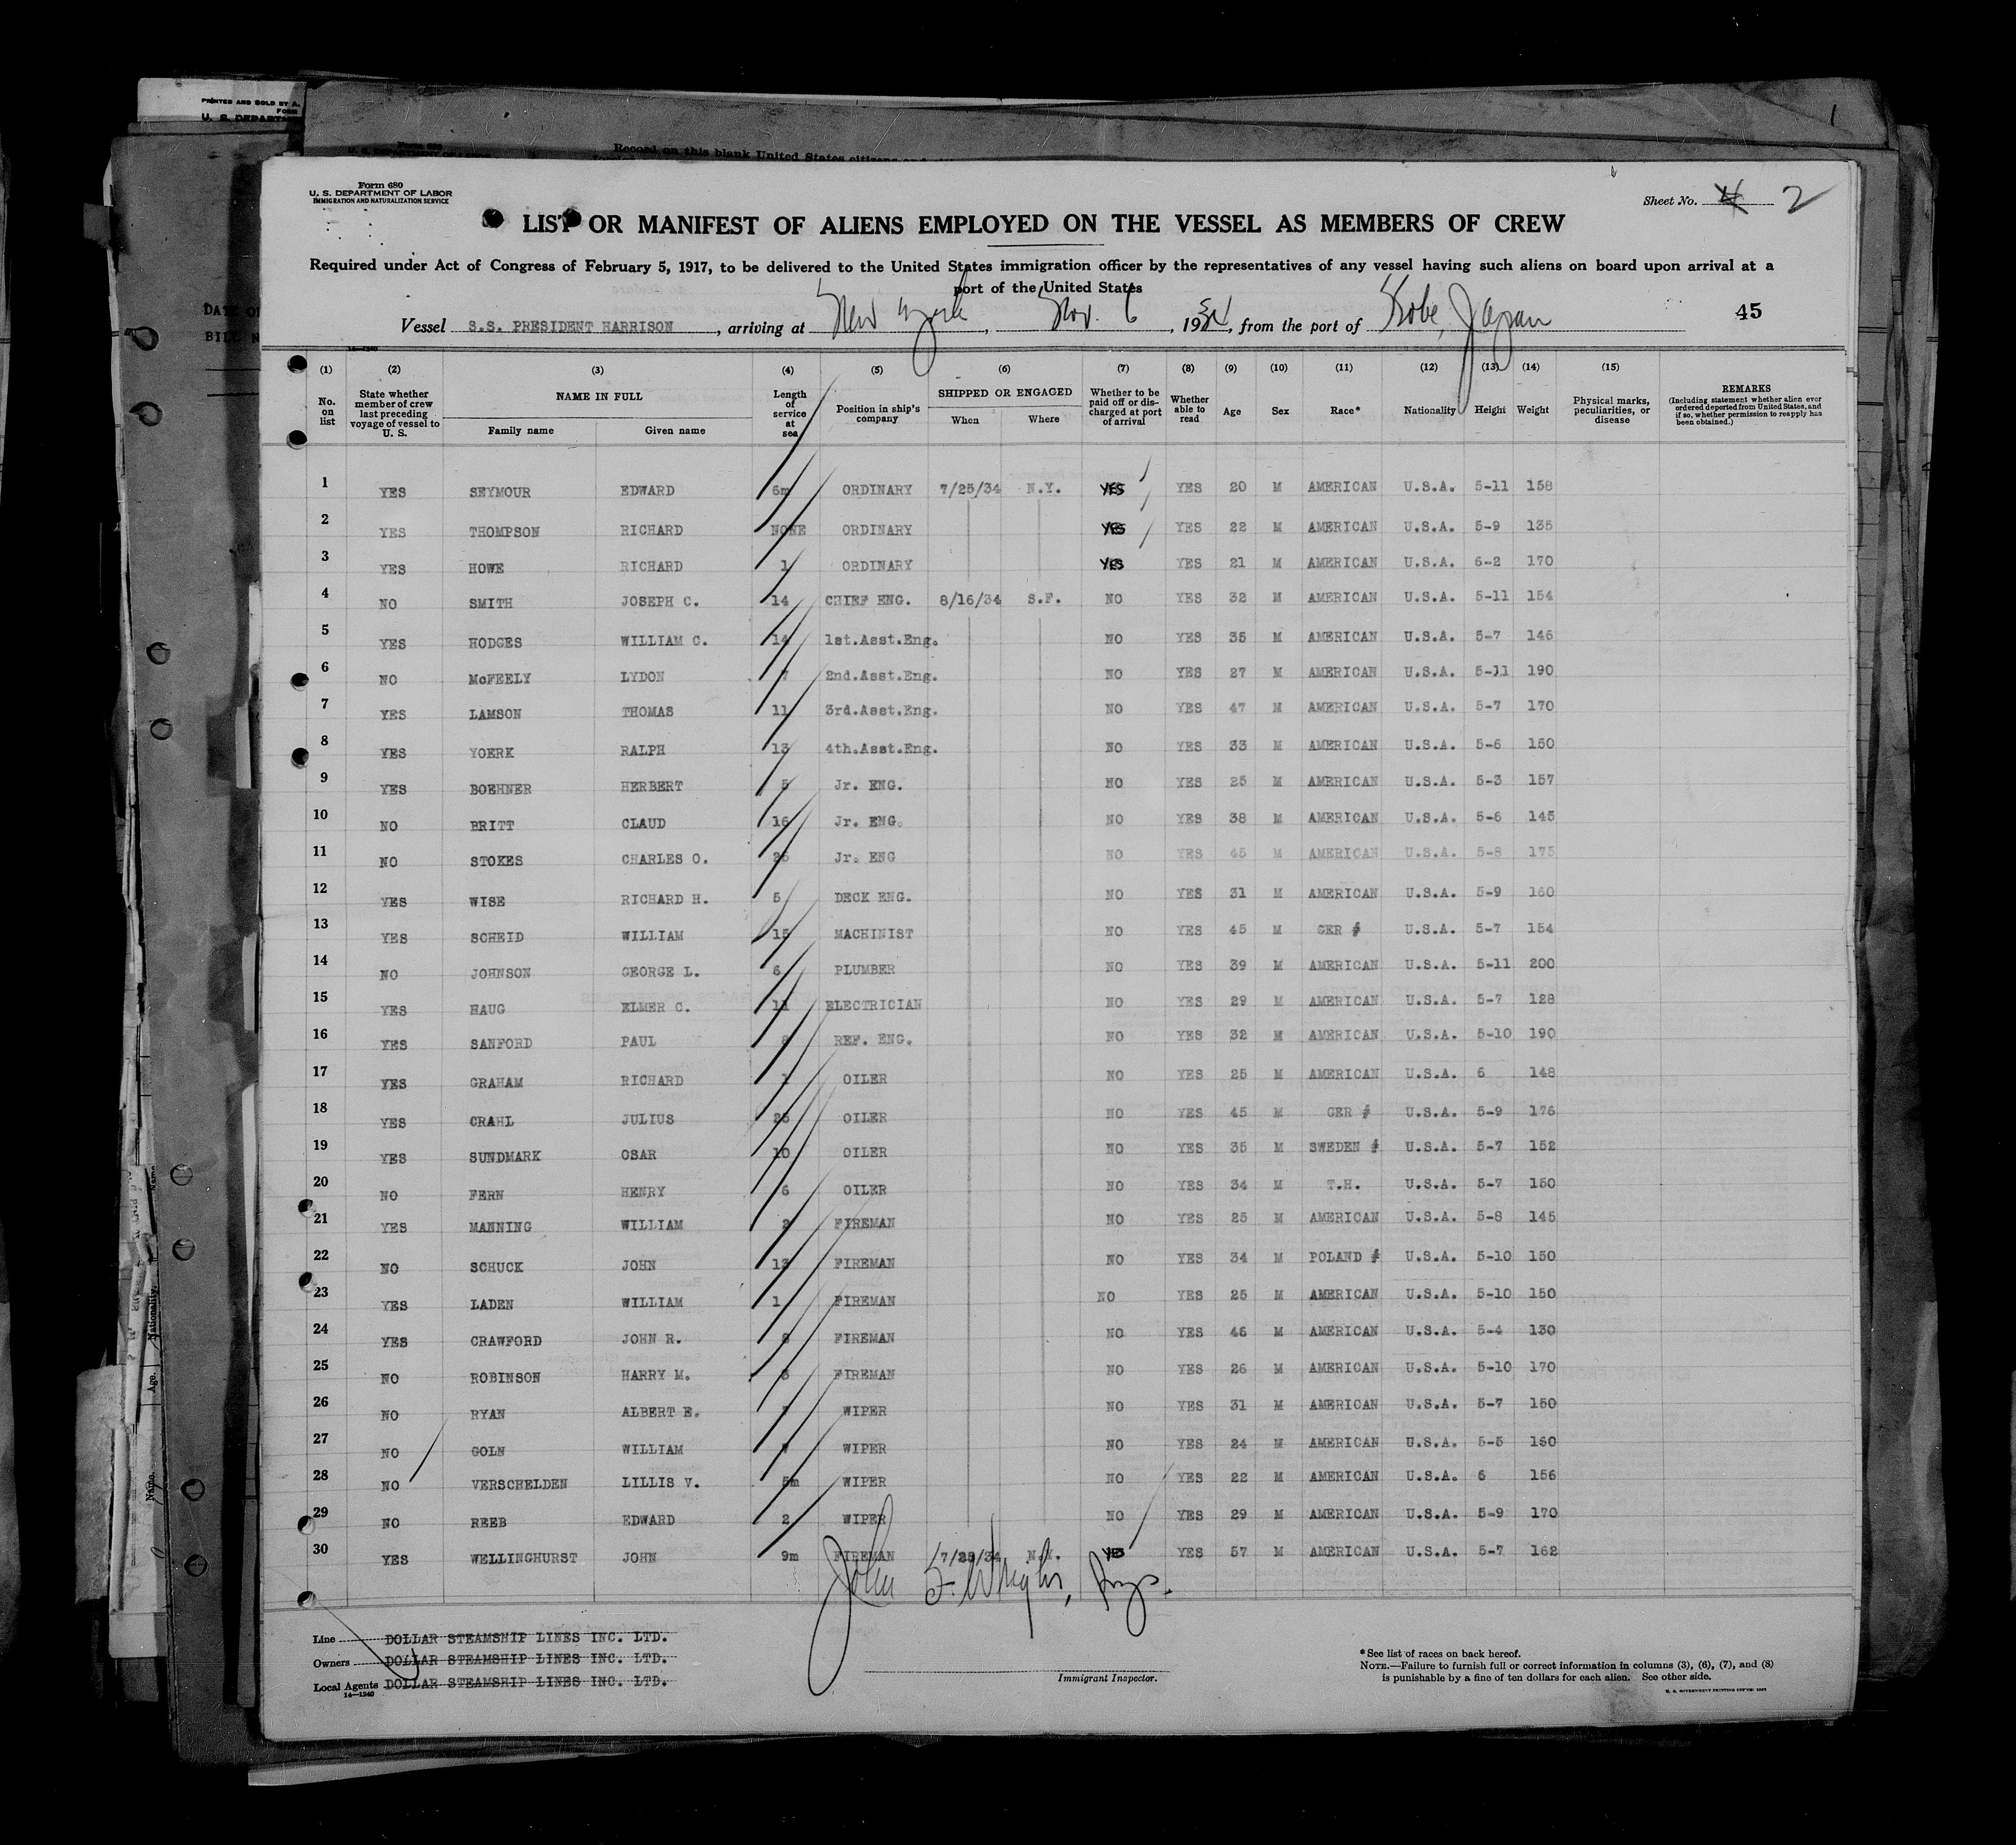 PRINTED AND SOLD BY A.
FORM
U. S. DEPARTM
Form 680
Record on this blank United States citizens and
DATE OF
BILL N
Form 680
U. S. DEPARTMENT OF LABOR
IMMIGRATION AND NATURALIZATION SERVICE
Sheet No. 4 2
LIST OR MANIFEST OF ALIENS EMPLOYED ON THE VESSEL AS MEMBERS OF CREW
Required under Act of Congress of February 5, 1917, to be delivered to the United States immigration officer by the representatives of any vessel having such aliens on board upon arrival at a
port of the United States
Vessel S.S. PRESIDENT HARRISON, arriving at New York, Nov. 6, 1934, from the port of Kobe, Japan 45
14—1240
(1) (2) (3) (4) (5) (6) (7) (8) (9) (10) (11) (12) (13) (14) (15)
No. on list State whether member of crew last preceding voyage of vessel to U. S. NAME IN FULL Family name Given name Length of service at sea Position in ship's company SHIPPED OR ENGAGED When Where Whether to be paid off or discharged at port of arrival Whether able to read Age Sex Race* Nationality Height Weight Physical marks, peculiarities, or disease REMARKS (Including statement whether alien ever ordered deported from United States, and if so, whether permission to reapply has been obtained.)
1 YES SEYMOUR EDWARD 6m ORDINARY 7/25/34 N.Y. YES YES 20 M AMERICAN U.S.A. 5-11 158
2 YES THOMPSON RICHARD NONE ORDINARY YES YES 22 M AMERICAN U.S.A. 5-9 135
3 YES HOWE RICHARD 1 ORDINARY YES YES 21 M AMERICAN U.S.A. 6-2 170
4 NO SMITH JOSEPH C. 14 CHIEF ENG. 8/16/34 S.F. NO YES 32 M AMERICAN U.S.A. 5-11 154
5 YES HODGES WILLIAM C. 14 1st.Asst.Eng. NO YES 35 M AMERICAN U.S.A. 5-7 146
6 NO McFEELY LYDON 7 2nd.Asst.Eng. NO YES 27 M AMERICAN U.S.A. 5-11 190
7 YES LAMSON THOMAS 11 3rd.Asst.Eng. NO YES 47 M AMERICAN U.S.A. 5-7 170
8 YES YOERK RALPH 13 4th.Asst.Eng. NO YES 33 M AMERICAN U.S.A. 5-6 150
9 YES BOEHNER HERBERT 5 Jr. ENG. NO YES 25 M AMERICAN U.S.A. 5-3 157
10 NO BRITT CLAUD 16 Jr. ENG. NO YES 38 M AMERICAN U.S.A. 5-6 145
11 NO STOKES CHARLES O. 25 Jr. ENG NO YES 45 M AMERICAN U.S.A. 5-8 175
12 YES WISE RICHARD H. 5 DECK ENG. NO YES 31 M AMERICAN U.S.A. 5-9 160
13 YES SCHEID WILLIAM 15 MACHINIST NO YES 45 M GER # U.S.A. 5-7 154
14 NO JOHNSON GEORGE L. 6 PLUMBER NO YES 39 M AMERICAN U.S.A. 5-11 200
15 YES HAUG ELMER C. 11 ELECTRICIAN NO YES 29 M AMERICAN U.S.A. 5-7 128
16 YES SANFORD PAUL 8 REF. ENG. NO YES 32 M AMERICAN U.S.A. 5-10 190
17 YES GRAHAM RICHARD 1 OILER NO YES 25 M AMERICAN U.S.A. 6 148
18 YES CRAHL JULIUS 25 OILER NO YES 45 M GER # U.S.A. 5-9 176
19 YES SUNDMARK OSAR 10 OILER NO YES 35 M SWEDEN # U.S.A. 5-7 152
20 NO FERN HENRY 6 OILER NO YES 34 M T.H. U.S.A. 5-7 150
21 YES MANNING WILLIAM 2 FIREMAN NO YES 25 M AMERICAN U.S.A. 5-8 145
22 NO SCHUCK JOHN 13 FIREMAN NO YES 34 M POLAND # U.S.A. 5-10 150
23 YES LADEN WILLIAM 1 FIREMAN NO YES 25 M AMERICAN U.S.A. 5-10 150
24 YES CRAWFORD JOHN R. 8 FIREMAN NO YES 46 M AMERICAN U.S.A. 5-4 130
25 NO ROBINSON HARRY M. FIREMAN NO YES 26 M AMERICAN U.S.A. 5-10 170
26 NO RYAN ALBERT E. 7 WIPER NO YES 31 M AMERICAN U.S.A. 5-7 150
27 NO GOLN WILLIAM WIPER NO YES 24 M AMERICAN U.S.A. 5-5 150
28 NO VERSCHELDEN LILLIS V. 5m WIPER NO YES 22 M AMERICAN U.S.A. 6 156
29 NO REEB EDWARD 2 WIPER NO YES 29 M AMERICAN U.S.A. 5-9 170
30 YES WELLINGHURST JOHN 9m FIREMAN 7/25/34 N.Y. YES YES 57 M AMERICAN U.S.A. 5-7 162
John F. Wright, Insp.
Line DOLLAR STEAMSHIP LINES INC. LTD.
Owners DOLLAR STEAMSHIP LINES INC. LTD.
Local Agents DOLLAR STEAMSHIP LINES INC. LTD.
14—1240
Immigrant Inspector.
*See list of races on back hereof.
NOTE.—Failure to furnish full or correct information in columns (3), (6), (7), and (8)
is punishable by a fine of ten dollars for each alien. See other side.
Name
Nationality.
Age.
Name.